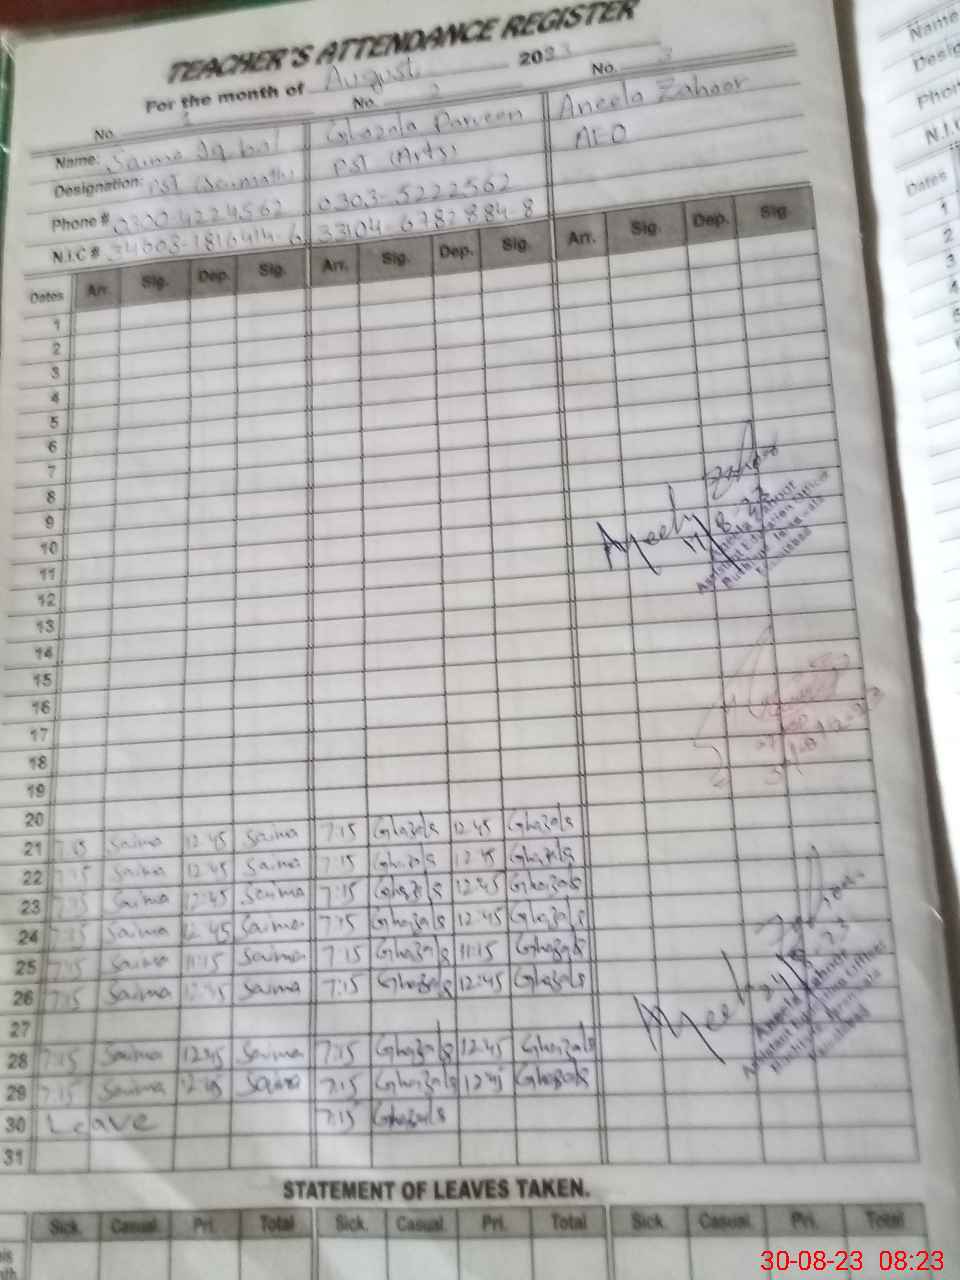 TEACHER'S ATTENDANCE REGISTER
For the month of August 2023
No. 1 No. 2 No. 3
Name: Saima Iqbal Ghazala Parveen Aneela Zahoor
Designation: PST PST (Arts) AEO
Phone # 0300-4224562 0303-5222562
N.I.C #
Dates Arr. Sig. Dep. Sig. Arr. Sig. Dep. Sig. Arr. Sig. Dep. Sig.
1
2
3
4
5
6
7
8
9
10
11
12
13
14
15
16
17
18
19
20
21 7:15 Saima 12:45 Saima 7:15 Ghazala 12:45 Ghazala
22 7:15 Saima 12:45 Saima 7:15 Ghazala 12:45 Ghazala
23 7:15 Saima 12:45 Saima 7:15 Ghazala 12:45 Ghazala
24 7:15 Saima 12:45 Saima 7:15 Ghazala 12:45 Ghazala
25 7:15 Saima 11:15 Saima 7:15 Ghazala 11:15 Ghazala
26 7:15 Saima 12:45 Saima 7:15 Ghazala 12:45 Ghazala
27
28 7:15 Saima 12:45 Saima 7:15 Ghazala 12:45 Ghazala
29 7:15 Saima 12:45 Saima 7:15 Ghazala 12:45 Ghazala
30 Leave 7:15 Ghazala
31
Aneela Zahoor
Assistant Education Officer
Aneela Zahoor
Assistant Education Officer
STATEMENT OF LEAVES TAKEN.
Sick. Casual. Pri. Total Sick. Casual. Pri. Total Sick. Casual. Pri. Total
Name
Phon
N.I.C
Dates
1
2
3
4
5
30-08-23 08:23